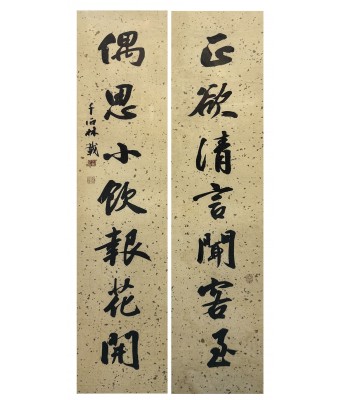 正欲清言聞客至
偶思小飲報花開